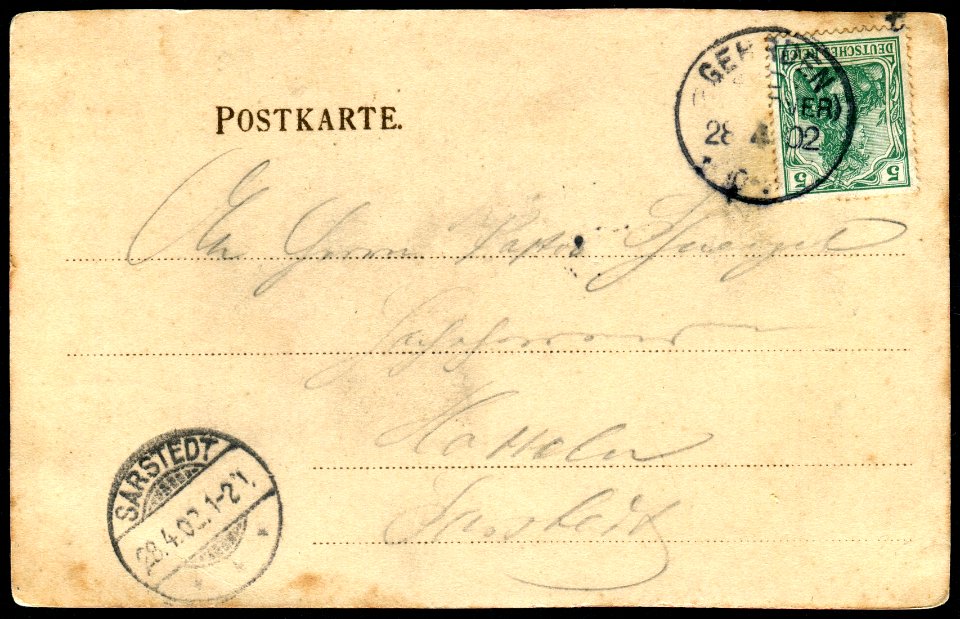 POSTKARTE.
GEHRDEN
(HANNOVER)
28 4 02
DEUTSCHES REICH
5 5
An Herrn Pastor
Hotteln
Sarstedt
SARSTEDT
28.4.02.1-2N.